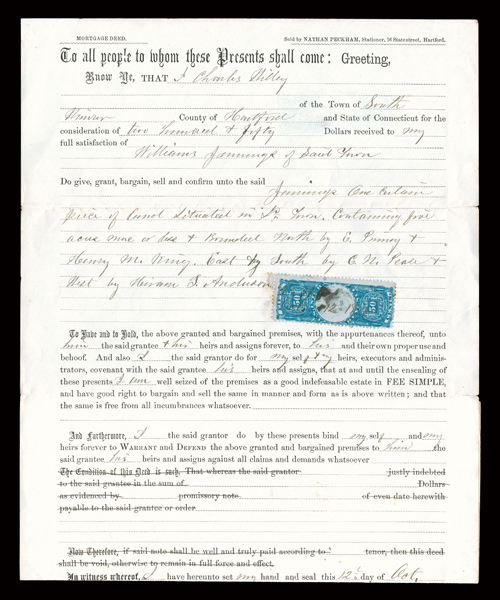 MORTGAGE DEED. Sold by NATHAN PECKHAM, Stationer, 16 State street, Hartford.
To all people to whom these Presents shall come: Greeting,
Know Ye, THAT I Charles
of the Town of South
Windsor County of Hartford and State of Connecticut for the
consideration of two hundred & fifty Dollars received to my
full satisfaction of Williams Jennings of Said Town
Do give, grant, bargain, sell and confirm unto the said Jennings One Certain
piece of Land Situated in Sd Town. Containing five
acres more or less & bounded North by E. &
Henry M. East by South by E. N. &
West by Hiram F. Anderson
To Have and to Hold, the above granted and bargained premises, with the appurtenances thereof, unto
him the said grantee & his heirs and assigns forever, to his and their own proper use and
behoof. And also I the said grantor do for my self & my heirs, executors and adminis-
trators, covenant with the said grantee his heirs and assigns, that at and until the ensealing
of these presents I am well seized of the premises as a good indefeasible estate in FEE SIMPLE,
and have good right to bargain and sell the same in manner and form as is above written; and that
the same is free from all incumbrances whatsoever.
And Furthermore, I the said grantor do by these presents bind my self and my
heirs forever to WARRANT and DEFEND the above granted and bargained premises to him the
said grantee his heirs and assigns against all claims and demands whatsoever
The Condition of this Deed is such, That whereas the said grantor justly indebted
to the said grantee in the sum of Dollars
as evidenced by promissory note of even date herewith
payable to the said grantee or order
Now Therefore, if said note shall be well and truly paid according to tenor, then this deed
shall be void, otherwise to remain in full force and effect.
In witness whereof, I have hereunto set my hand and seal this 12th day of Oct.